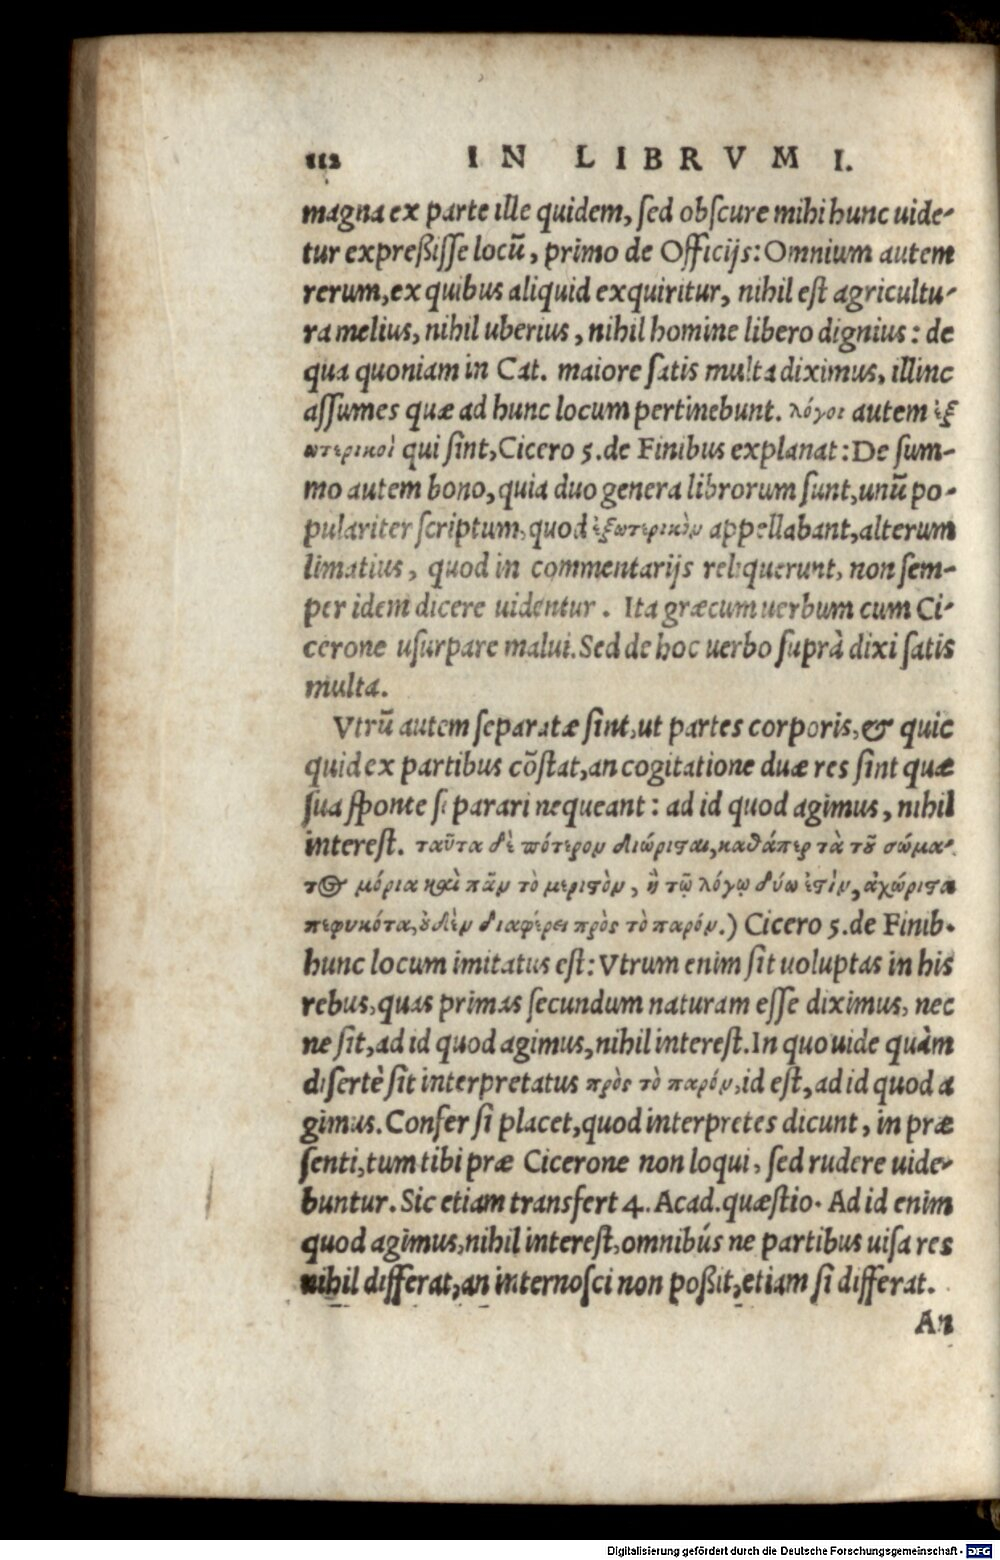 112 IN LIBRVM I.
magna ex parte ille quidem, sed obscure mihi hunc uide-
tur expreßisse locū, primo de Officijs: Omnium autem
rerum, ex quibus aliquid exquiritur, nihil est agricultu-
ra melius, nihil uberius, nihil homine libero dignius: de
qua quoniam in Cat. maiore satis multa diximus, illinc
assumes quæ ad hunc locum pertinebunt. λόγοι autem ἐξ
ωτερικοὶ qui sint, Cicero 5. de Finibus explanat: De sum-
mo autem bono, quia duo genera librorum sunt, unū po-
pulariter scriptum, quod ἐξωτερικὸν appellabant, alterum
limatius, quod in commentarijs reliquerunt, non sem-
per idem dicere uidentur. Ita græcum uerbum cum Ci-
cerone usurpare malui. Sed de hoc uerbo suprà dixi satis
multa.
Vtrū autem separatæ sint, ut partes corporis, & quic
quid ex partibus cōstat, an cogitatione duæ res sint quæ
sua sponte separari nequeant: ad id quod agimus, nihil
interest. ταῦτα δὲ πότερον διώρισαι, καθάπερ τὰ τοῦ σώμα-
τος μόρια καὶ πᾶν τὸ μεριστὸν, ἢ τῷ λόγῳ δύω ἐστὶν, ἀχώριστα
πεφυκότα, οὐδὲν διαφέρει πρὸς τὸ παρόν.) Cicero 5. de Finib.
hunc locum imitatus est: Vtrum enim sit uoluptas in his
rebus, quas primas secundum naturam esse diximus, nec
ne sit, ad id quod agimus, nihil interest. In quo uide quàm
disertè sit interpretatus πρὸς τὸ παρόν, id est, ad id quod a
gimus. Confer si placet, quod interpretes dicunt, in præ
senti, tum tibi præ Cicerone non loqui, sed rudere uide-
buntur. Sic etiam transfert 4. Acad. quæstio. Ad id enim
quod agimus, nihil interest, omnibús ne partibus uisa res
nihil differat, an internosci non poßit, etiam si differat.
An
Digitalisierung gefördert durch die Deutsche Forschungsgemeinschaft - DFG